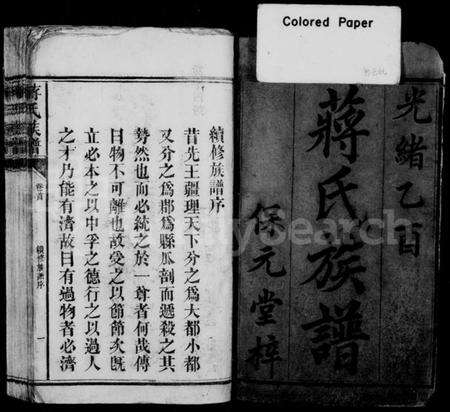 Colored Paper
光緒乙酉
蔣氏族譜
保元堂梓
續修族譜序
昔先王疆理天下分之為大都小都
又分之為郡為縣瓜剖而遞殺之其
勢然也而必統之於一尊者何哉傳
曰物不可離也故受之以節節次既
立必本之以中孚之德行之以過人
之才乃能有濟故曰有過物者必濟
蔣氏族譜
卷首
續修族譜序
一